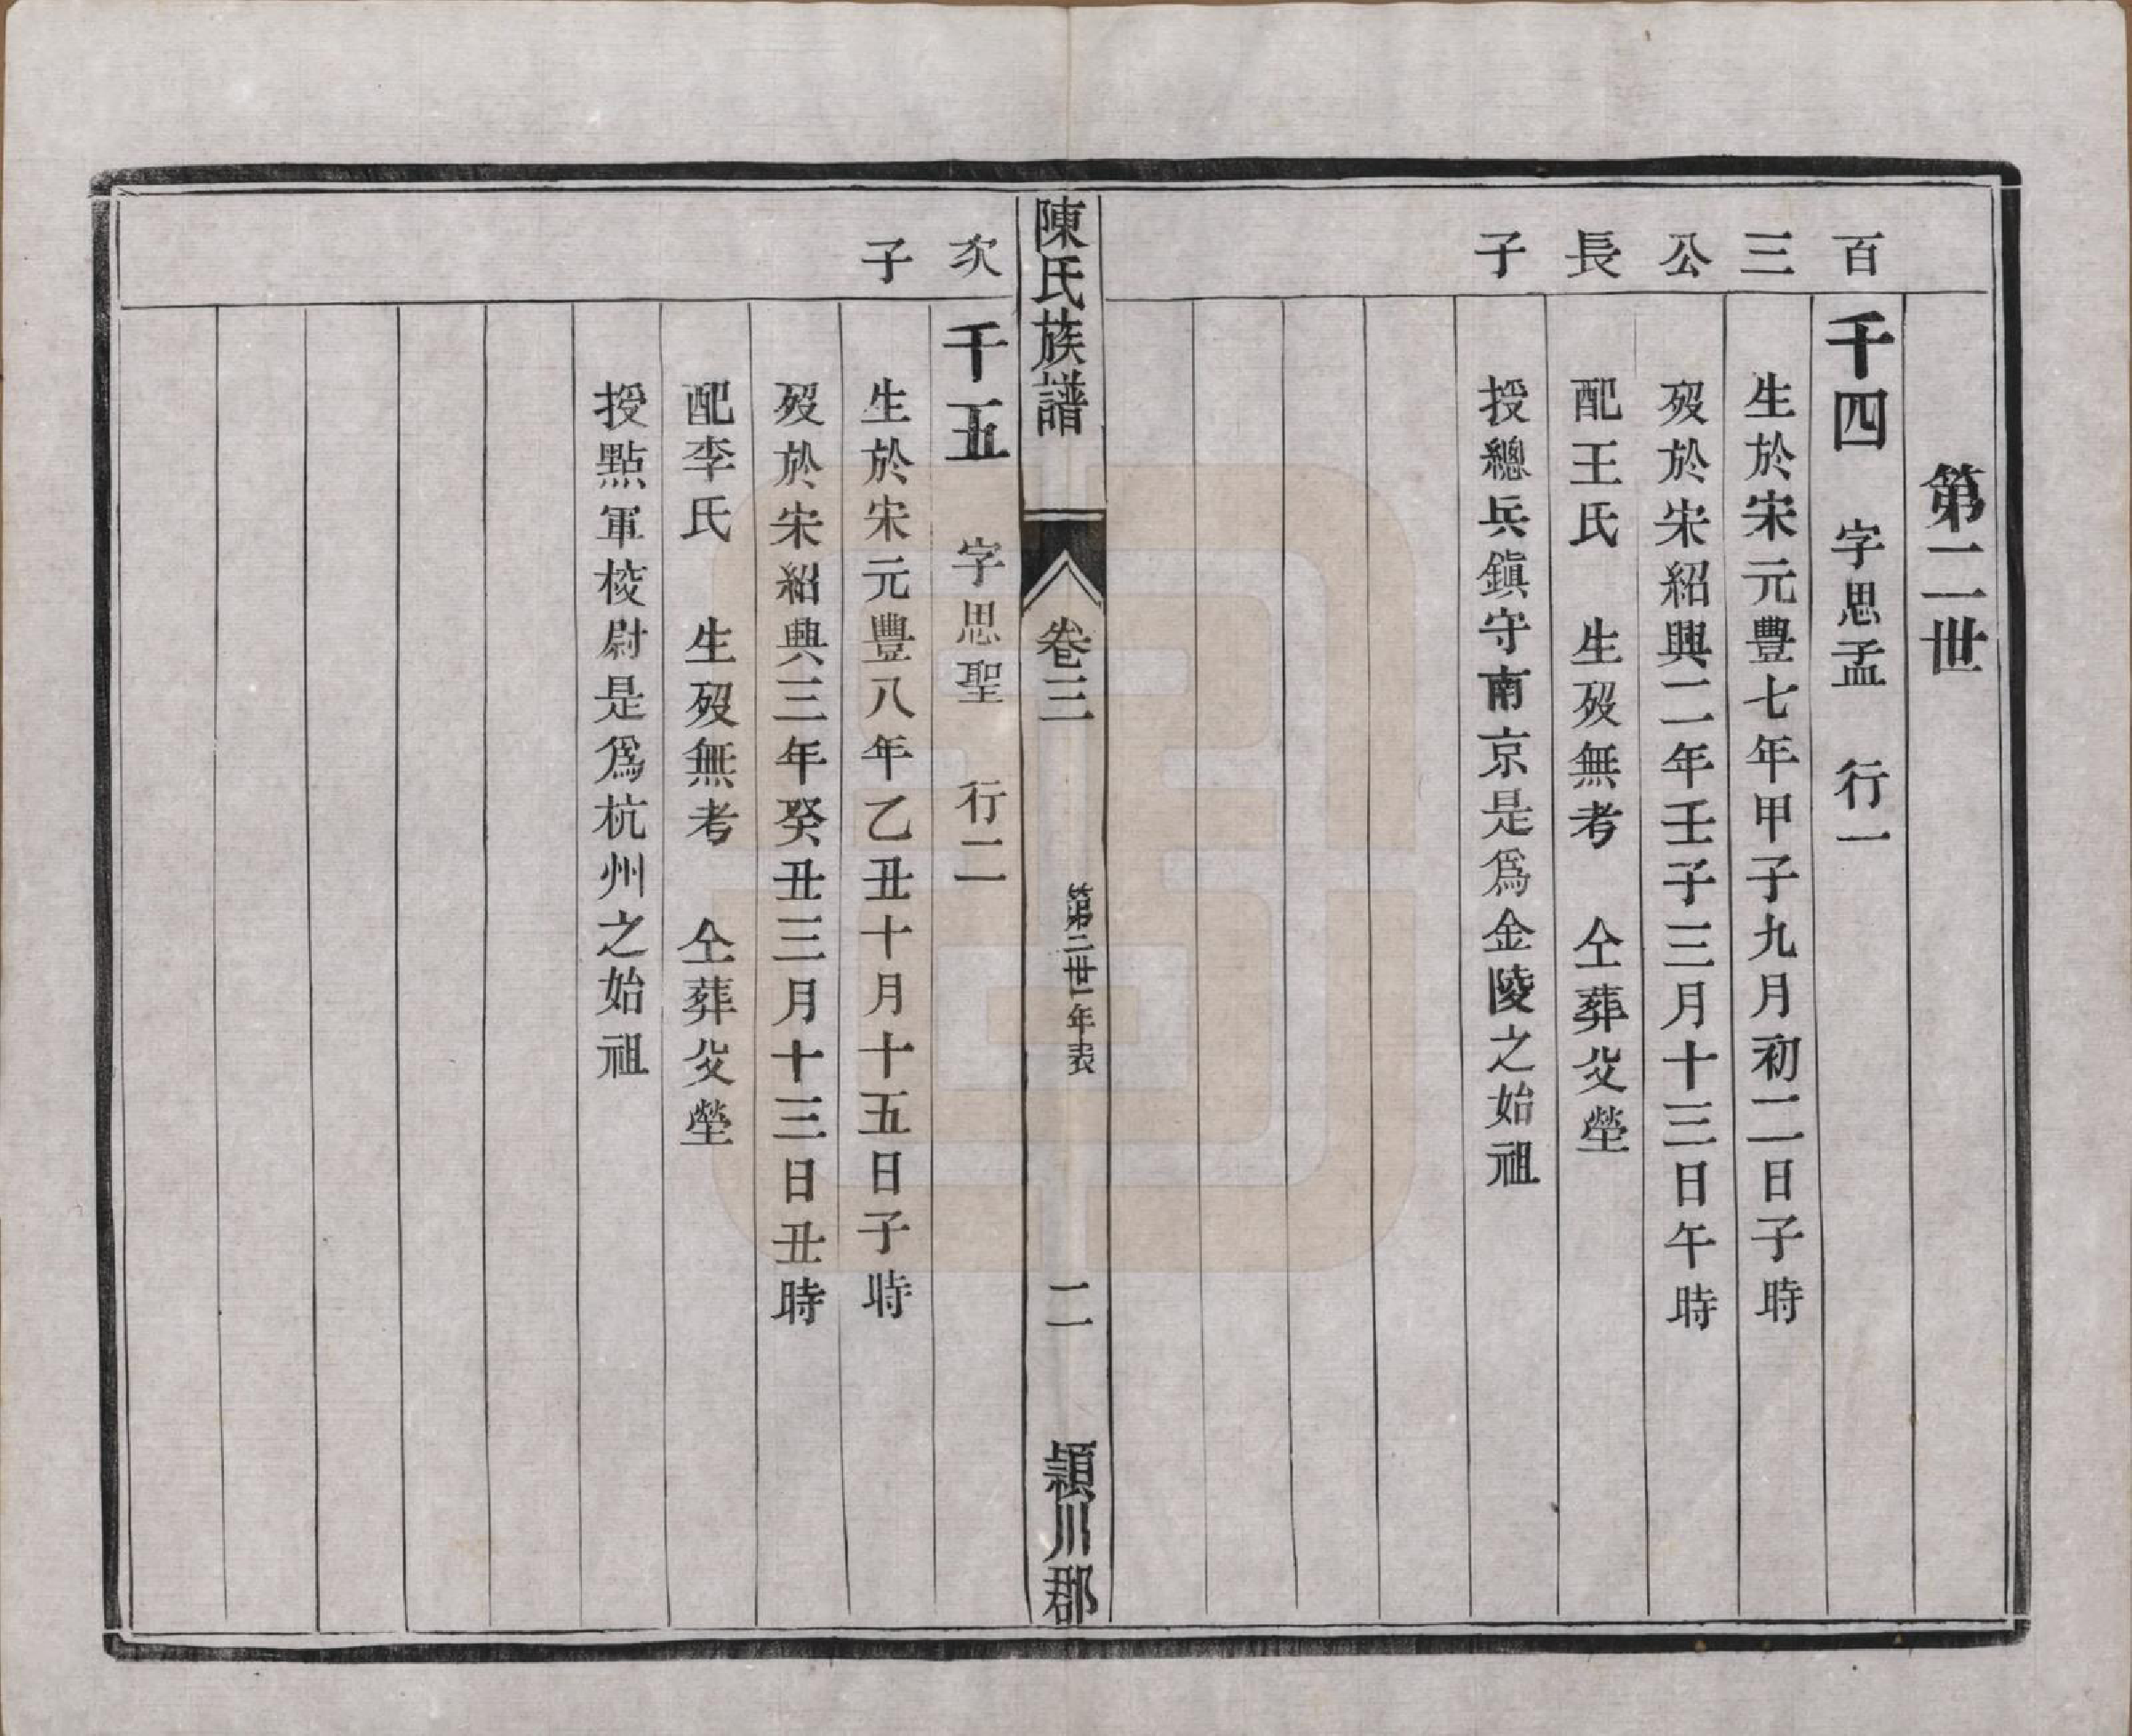 第二世
百三公長子
千四 字思孟 行一
生於宋元豐七年甲子九月初二日子時
歿於宋紹興二年壬子三月十三日午時
配王氏 生歿無考 仝葬父塋
授總兵鎮守南京是爲金陵之始祖
陳氏族譜 卷三 第二世年表 二 頴川郡
次子
千五 字思聖 行二
生於宋元豐八年乙丑十月十五日子時
歿於宋紹興三年癸丑三月十三日丑時
配李氏 生歿無考 仝葬父塋
授點軍校尉是爲杭州之始祖